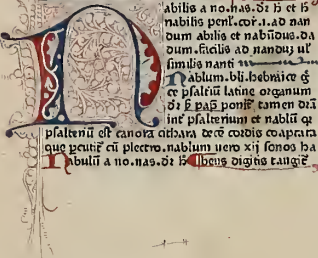 abilis a no.nas. dr̄ h̄ et h̄
nabilis penl̄. cor̄. i. ad nan
dum abilis et nabūdus. da
dum. facilis ad nanduȝ ul̓
similis nanti
N ablum. bli. hebraice ḡ
ce psaltiū latine organum
dr̄ h̄ pap̄ ponit̄. tamen drn̄
int̓ psalterium et nabluȝ q
psalteriū est canora cithara decē cordis coaptata
que pcutit̄ cū plectro. nablum uero xij sonos ha
Nabulū a no. nas. dr̄ h̄ ¶ bens digitis tangit̄